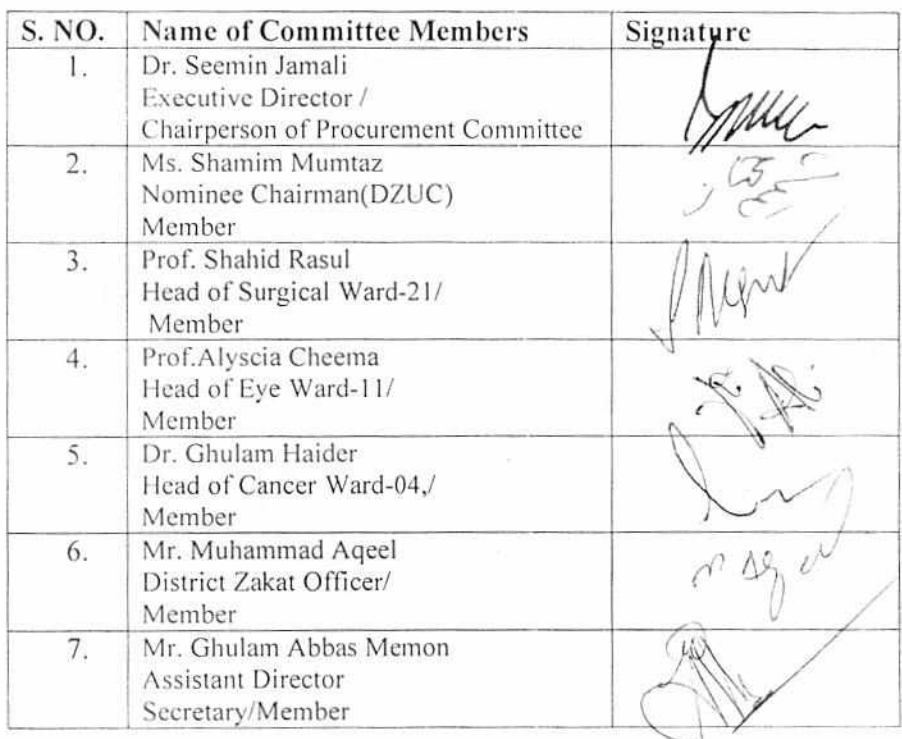 S. NO. Name of Committee Members Signature
1. Dr. Seemin Jamali
Executive Director /
Chairperson of Procurement Committee
2. Ms. Shamim Mumtaz
Nominee Chairman(DZUC)
Member
3. Prof. Shahid Rasul
Head of Surgical Ward-21/
Member
4. Prof.Alyscia Cheema
Head of Eye Ward-11/
Member
5. Dr. Ghulam Haider
Head of Cancer Ward-04,/
Member
6. Mr. Muhammad Aqeel
District Zakat Officer/
Member
7. Mr. Ghulam Abbas Memon
Assistant Director
Secretary/Member